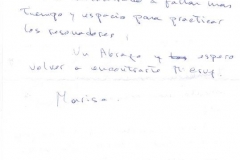 a faltar mas
tiempo y espacio para practicar
los resonadores!
Un Abrazo y espero
volver a encontrarte
Marisa.